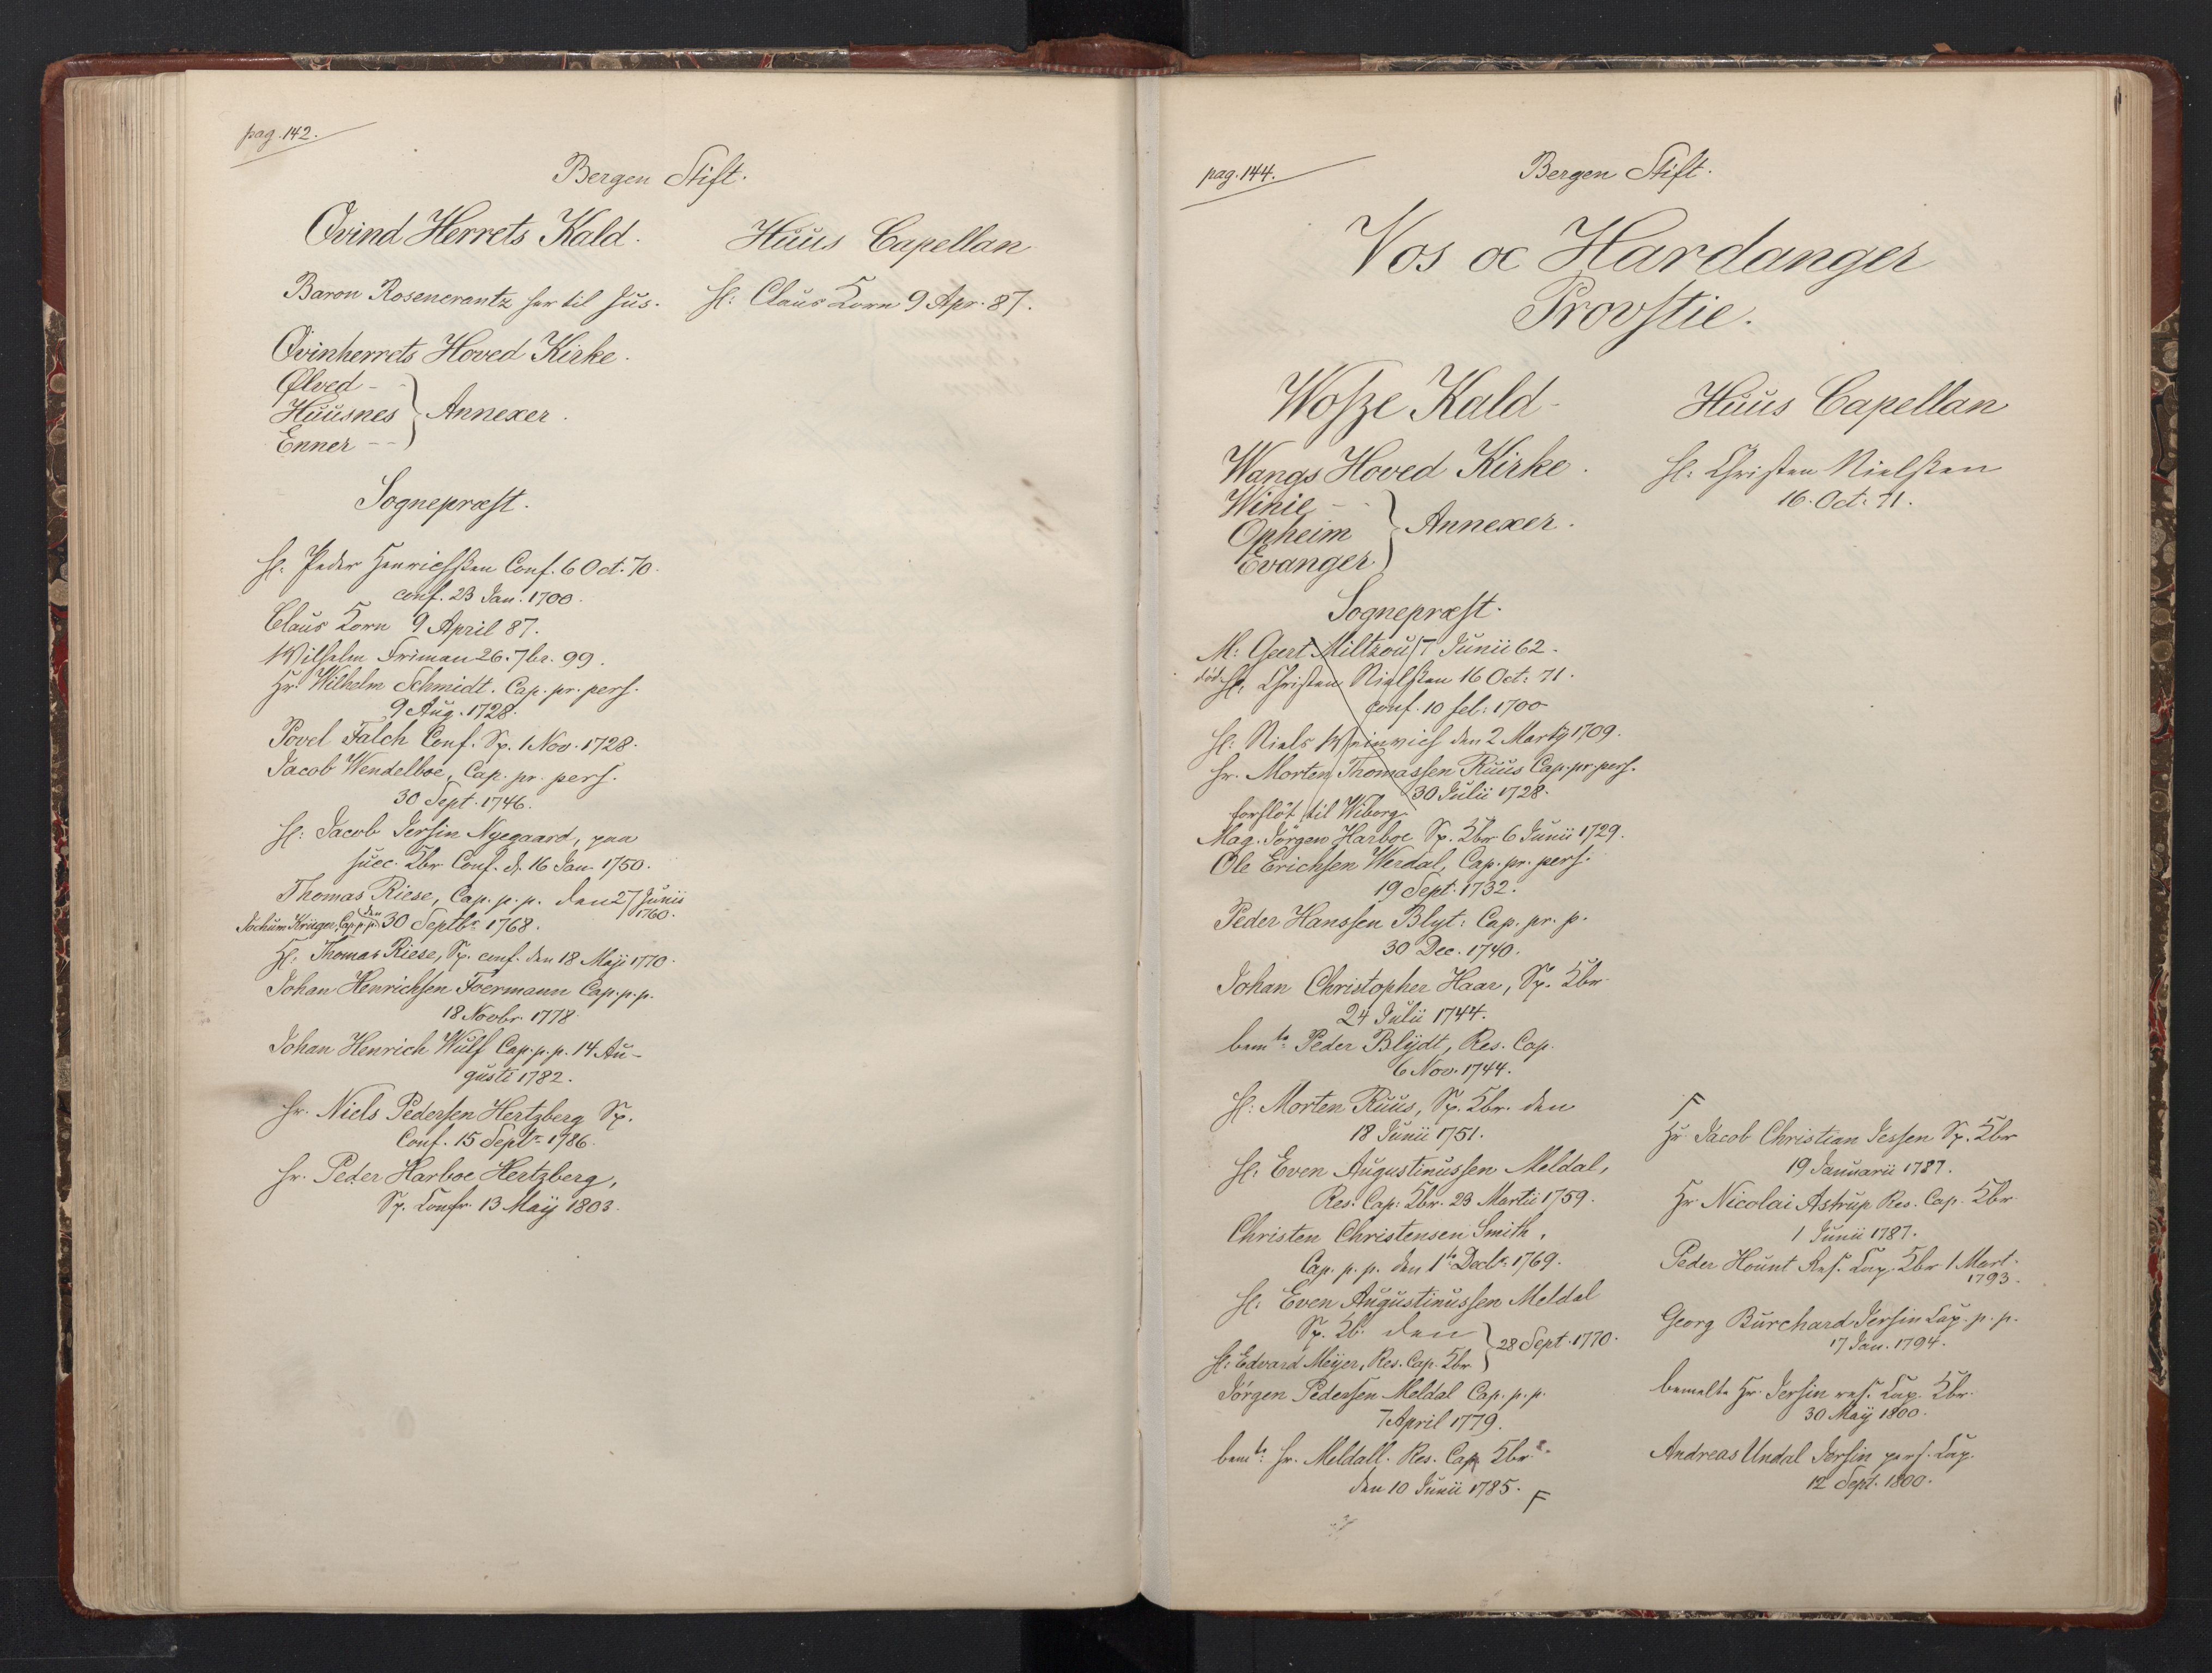 pag. 142.
Bergen Stift.
Øvind Herrets Kald.
Baron Rosencrantz har til Jus.
Øvinherrets Hoved Kirke.
Ølved - -
Huusnes } Annexer.
Enner - -
Sognepræst.
H: Peder Henrichsen Conf. 6 Oct. 70.
conf. 23 Jan. 1700.
Claus Korn 9 April 87.
Wilhelm Friman 26. 7br. 99.
Hr: Wilhelm Schmidt. Cap. pr. pers.
9 Aug. 1728.
Povel Falch Conf. Sp. 1 Nov. 1728.
Jacob Wendelboe, Cap. pr. pers.
30 Sept. 1746.
H: Jacob Jersin Nyegaard, paa
succ. Kbr Conf. d. 16 Jan. 1750.
Thomas Riese, Cap. p. p. den 27 Junii
1760.
Jochum Krüger, Cap. p. p. den 30 Septbr 1768.
H: Thomas Riese, Sp. conf. den 18 Maji 1770.
Johan Henrichsen Foermann Cap. p. p.
18 Novbr. 1778.
Johan Henrich Wulf Cap. p. p. 14 Au-
gusti 1782.
Hr. Niels Pedersen Hertzberg Sp.
Conf. 15 Septr 1786.
Hr. Peder Harboe Hertzberg,
Sp. Confr. 13 Maÿ 1803.
Huus Capellan
H: Claus Korn 9 Apr. 87.
pag. 144.
Bergen Stift.
Vos oc Hardanger
Provstie.
Wosze Kald
Wangs Hoved Kirke.
Winie - -
Opheim } Annexer.
Evanger
Sognepræst.
M: Geert Miltzou 17 Junii 62.
død. H: Christen Nielssen 16 Oct: 71.
Conf. 10 feb: 1700
H: Niels Weinwich den 2 Martÿ 1709.
Hr. Morten Thomassen Ruus Cap. pr. pers.
30 Julii 1728.
forflöt til Wiborg
Mag. Jörgen Harboe Sp. Kbr 6 Junii 1729.
Ole Erichsen Werdal, Cap. pr. pers.
19 Sept. 1732.
Peder Hanssen Blyt: Cap. pr. p.
30 Dec. 1740.
Johan Christopher Haar, Sp. Kbr
24 Julii 1744.
bemte Peder Blÿdt, Res. Cap.
6 Nov. 1744.
H: Morten Ruus, Sp. Kbr. den
18 Junii 1751.
H: Even Augustinussen Meldal,
Res: Cap: Kbr. 23 Martii 1759.
Christen Christensen Smith,
Cap. p. p. den 1te Decbr 1769.
H: Even Augustinussen Meldal
Sp. Kb: den } 28 Sept. 1770.
H: Edvard Meÿer, Res. Cap. Kbr.
Jörgen Pedersen Meldal Cap. p. p.
7 April 1779.
bemte Hr. Meldall. Res. Cap Kbr
den 10 Junii 1785. F
Huus Capellan
H: Christen Nielssen
16. Oct: 71.
F
Hr Jacob Christian Jessen Sp. Kbr
19 Januarii 1787.
Hr Nicolai Astrup Res. Cap. Kbr
1 Junii 1787.
Peder Hount Res. Cap. Kbr 1 Mart.
1793.
Georg Burchard Jersin Cap. p. p.
17 Jan. 1794.
bemelte Hr. Jersin res. Cap. Kbr.
30 Maÿ 1800.
Andreas Undal Jersin pers. Cap.
12 Sept. 1800.